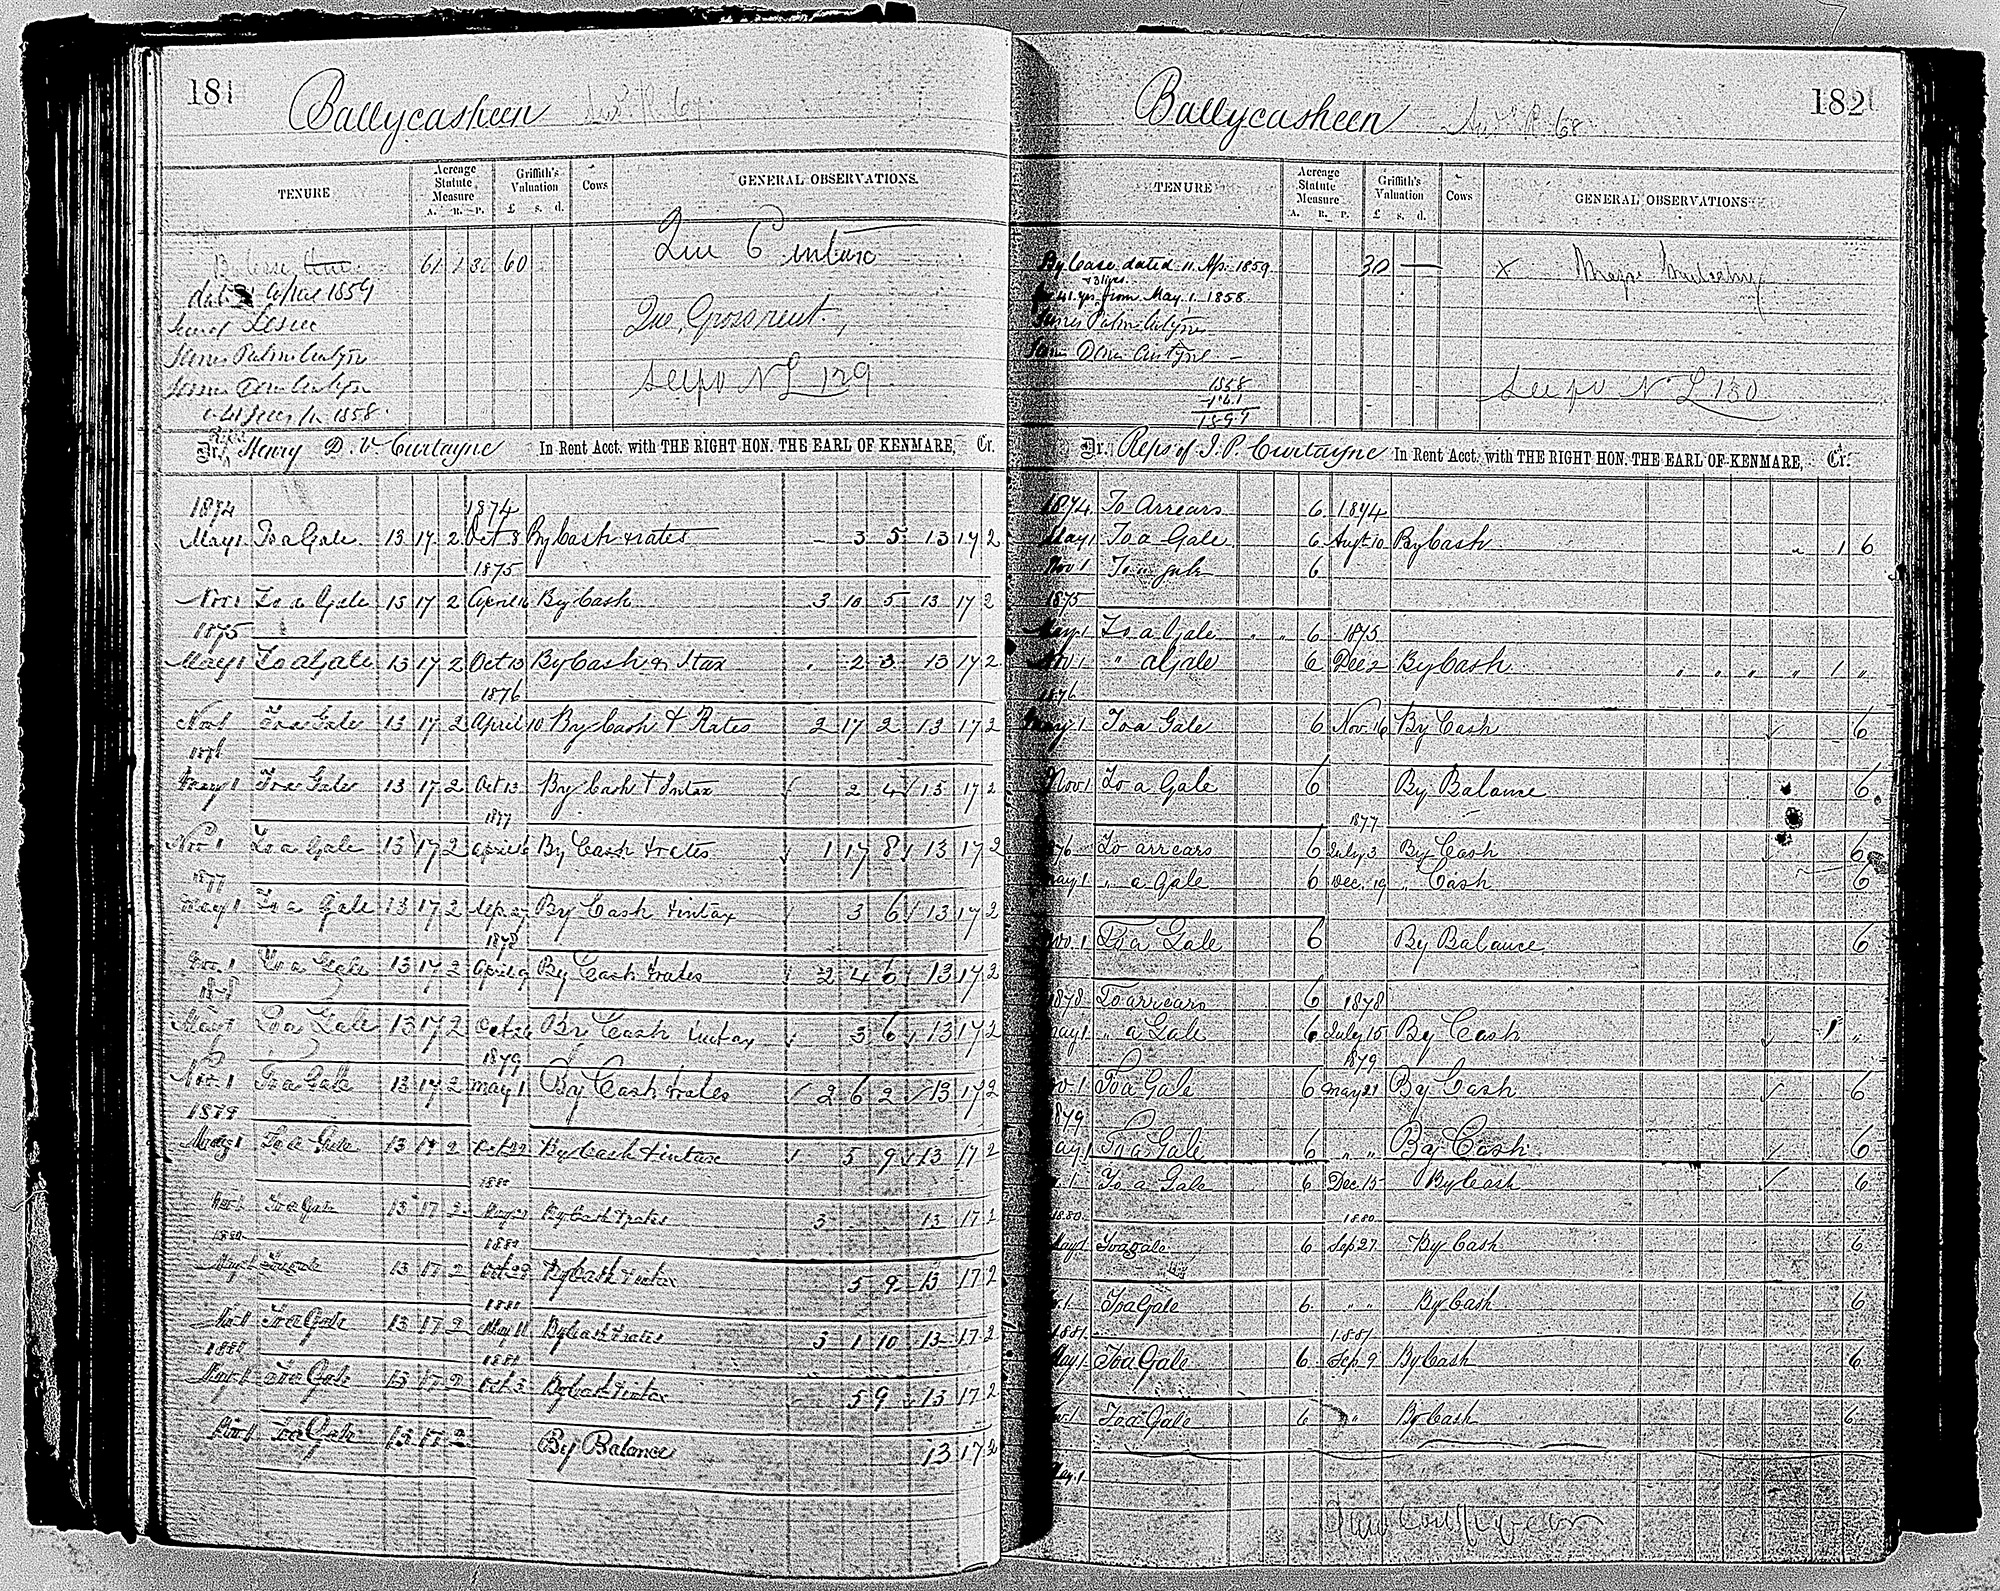 181
Ballycasheen
TENURE
Acreage Statute Measure
A. R. P.
Griffith's Valuation
£ s. d.
Cows
GENERAL OBSERVATIONS.
61 1 60
April 1859
Lessee
1858.
Que Grossrent
129
Dr. Henry D. V. Curtayne In Rent Acct. with THE RIGHT HON. THE EARL OF KENMARE, Cr.
1874 1874
May 1 To a Gale 13 17 2 Oct 8 By Cash & rates - 3 5 13 17 2
1875
Nov 1 To a Gale 13 17 2 April By Cash 3 10 5 13 17 2
1875
May 1 To a Gale 13 17 2 Oct 13 By Cash & Itax 2 3 13 17 2
1876
Nov 1 To a Gale 13 17 2 April 10 By Cash & Rates 2 17 2 13 17 2
1876
May 1 To a Gale 13 17 2 Oct 13 By Cash & Intax 2 4 13 17 2
1877
Nov 1 To a Gale 13 17 2 April By Cash & rates 1 17 8 13 17 2
1877
May 1 To a Gale 13 17 2 Sep 27 By Cash & intax 3 6 13 17 2
1878
Nov. 1 To a Gale 13 17 2 April 9 By Cash & rates 2 4 6 13 17 2
1878
May 1 To a Gale 13 17 2 Oct 26 By Cash intax 3 6 13 17 2
1879
Nov. 1 To a Gale 13 17 2 May 1 By Cash & rates 2 6 2 13 17 2
1879
May 1 To a Gale 13 17 2 Oct 22 By Cash & intax 5 9 13 17 2
1880
Nov 1 To a Gale 13 17 2 May By Cash & rates 3 13 17 2
1880 1880
May 1 To a gale 13 17 2 Oct 29 By Cash & intax 5 9 13 17 2
1881
Nov 1 To a Gale 13 17 2 May 11 By Cash & rates 3 1 10 13 17 2
1881 1881
May 1 To a Gale 13 17 2 Oct 3 By Cash & intax 5 9 13 17 2
Nov 1 To a Gale 13 17 2 By Balance 13 17 2
182
Ballycasheen
TENURE
Acreage Statute Measure
A. R. P.
Griffith's Valuation
£ s. d.
Cows
GENERAL OBSERVATIONS
By Lease dated 11. Ap. 1859 30 — x
41 yrs from May 1. 1858.
1858
41
1899
130
Dr. Reps of J. P. Curtayne In Rent Acct. with THE RIGHT HON. THE EARL OF KENMARE, Cr.
1874 To Arrears 6 1874
May 1 To a Gale 6 Augt 10 By Cash 1 6
Nov 1 To a gale 6
1875
May 1 To a Gale 6 1875
Nov. 1 " a Gale 6 Dec 2 By Cash 1 "
1876
May 1 To a Gale 6 Nov. 16 By Cash 6
Nov 1 To a Gale 6 By Balance 6
1877
To arrears 6 July 3 By Cash 6
May 1 " a Gale 6 Dec. 19 " Cash 6
Nov. 1 To a Gale 6 By Balance 6
1878 To arrears 6 1878
May 1 " a Gale 6 July 15 By Cash 1 "
1879
Nov. 1 To a Gale 6 May 21 By Cash 6
1879
May 1 To a Gale 6 " " By Cash 6
To a Gale 6 Dec 15 By Cash 6
1880 1880
May 1 To a gale 6 Sep 27 By Cash 6
To a Gale 6 " " By Cash 6
1881 1881
May 1 To a Gale 6 Sep 9 By Cash 6
To a Gale 6 " By Cash 6
May 1